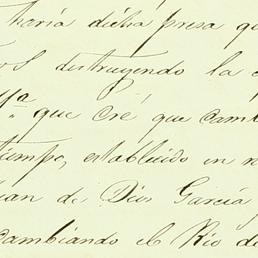 haría dicha presa qu
os destruyendo la c
ya que cré que camb
tiempo, establecido en
uan de Dios García
cambiando el Rio de